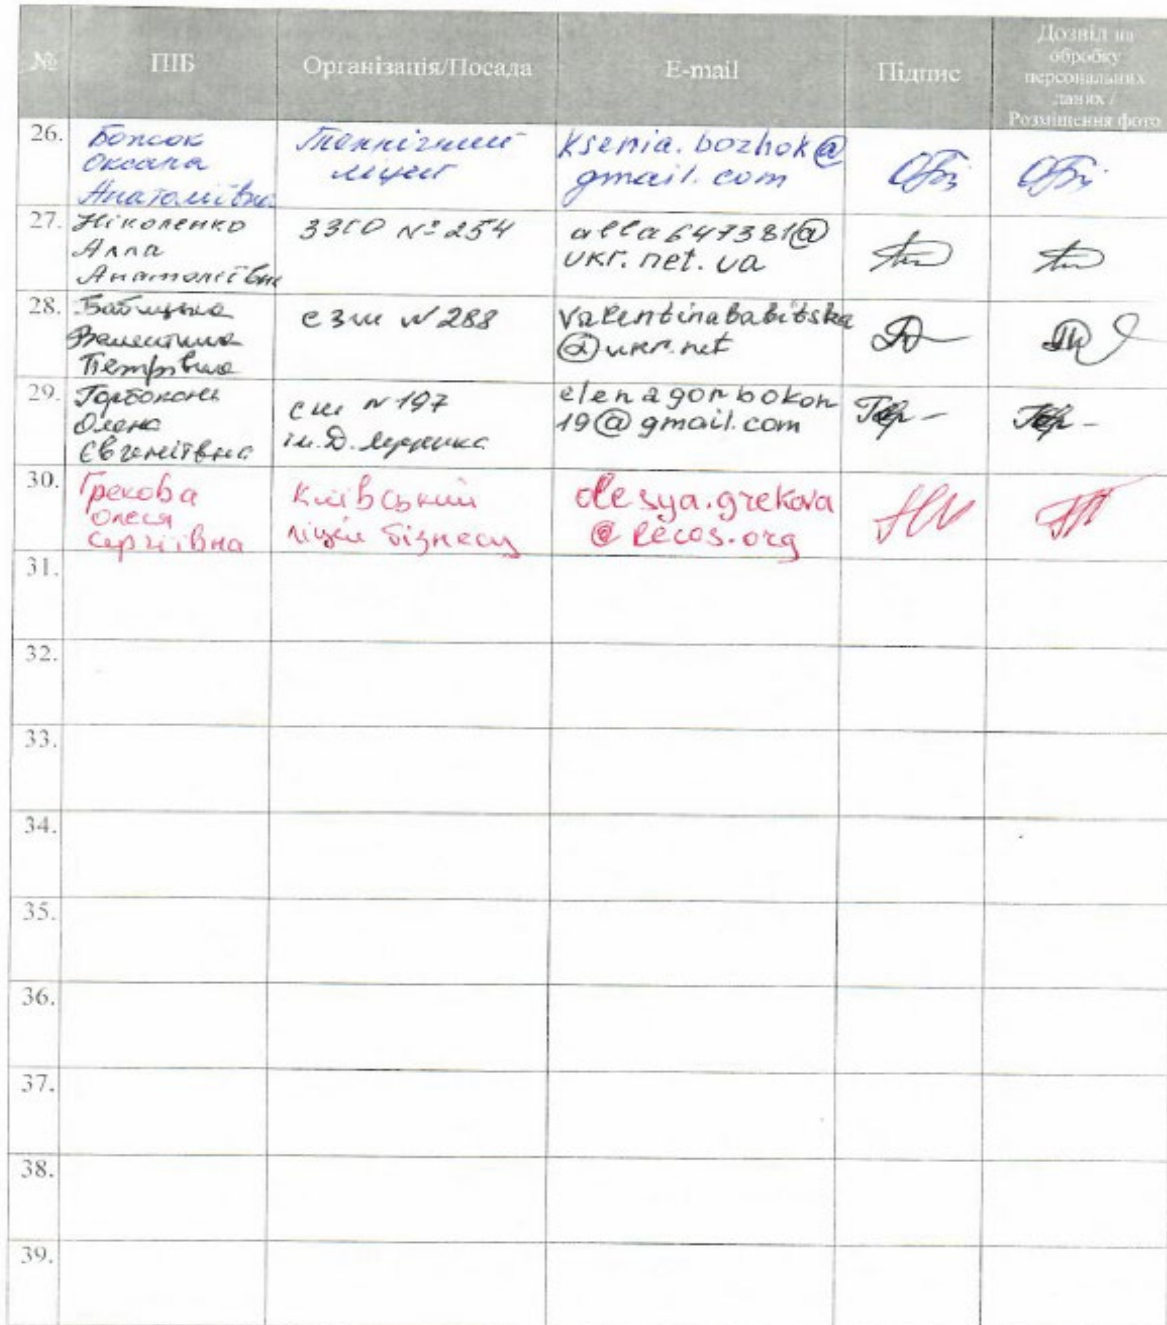 № ПІБ Організація/Посада E-mail Підпис Дозвіл на обробку персональних даних / Розміщення фото
26. Божок Оксана Анатоліївна Технічний ліцей ksenia.bozhok@gmail.com
27. Ніколенко Алла Анатоліївна ЗЗСО №254 alla647381@ukr.net.ua
28. Бабицька Валентина Петрівна СЗШ N288 valentinababitska@ukr.net
29. Горбоконь Олена Євгеніївна СШ N197 ім. Д. Луценка elenagorbokon19@gmail.com
30. Грекова Олеся Сергіївна Київський ліцей бізнесу olesya.grekova@lecos.org
31.
32.
33.
34.
35.
36.
37.
38.
39.